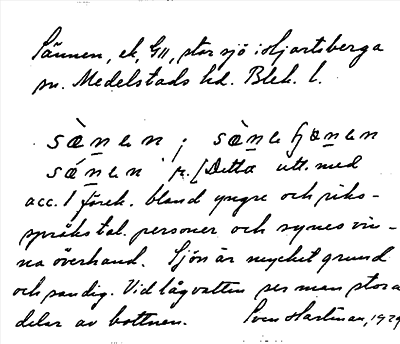 Sännen, ek, G11, stor sjö i Hjortsberga
sn. Medelstads hd. Blek. l.
sænen; sæne
sænen [Detta utt. med
acc. 1 förek. bland yngre och riks-
språkstal. personer och synes vin-
na överhand. Sjön är mycket grund
och sandig. Vid lågvatten ser man stora
delar av bottnen. Sven Hartman, 1929